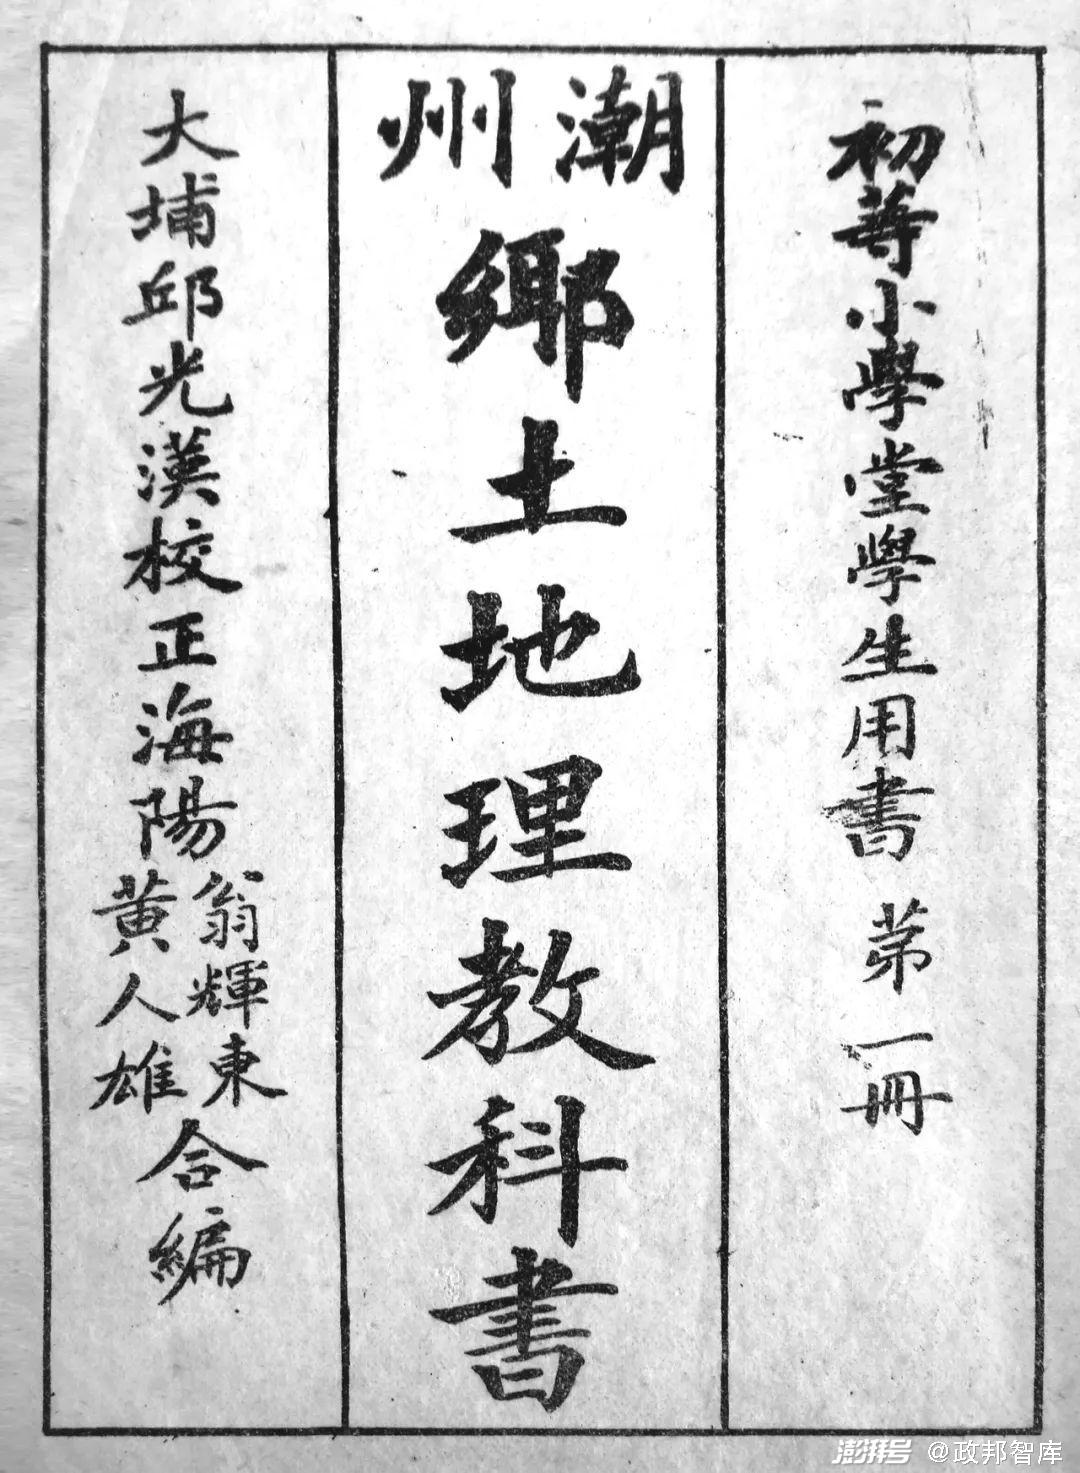 初等小學堂學生用書 第一冊
潮州
鄉土地理教科書
大埔邱光漢校正海陽
翁輝東
黃人雄
合編
澎湃号 @政邦智库